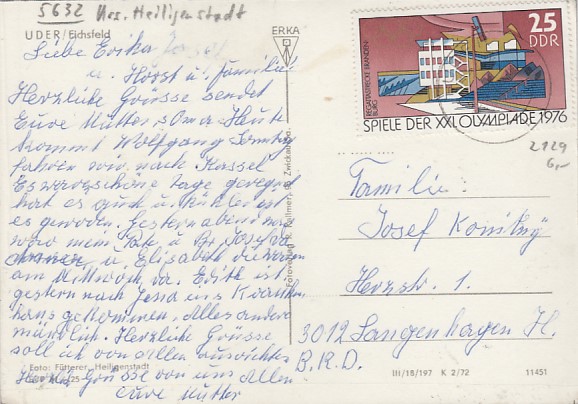 5632 Krs. Heiligenstadt
UDER/Eichsfeld
Liebe Erika Josef
u. Horst u. Familie!
Herzliche Grüsse sendet
Eure Mutter u Oma. Heute
kommt Wolfgang Sonntag
fahren wir nach Kassel
Es war schöne Tage gereged
hat es auch u kühler ist
es geworden. Gestern abend
war mein
u Elisabeth die waren
am Mittwoch da. Edith ist
gestern nach Jena ins Kranken
haus gekommen. Alles andere
mündlich. Herzliche Grüsse
soll ich von allen ausrichten
Foto: Fütterer, Heiligenstadt
Grüsse von uns Allen
Eure Mutter
ERKA
Zwickau
25
DDR
REGATTASTRECKE BRANDEN-
BURG
SPIELE DER XXI. OLYMPIADE 1976
2129
6,-
Familie:
Josef
Herzstr. 1.
3012 Langenhagen H.
B.R.D.
III/18/197 K 2/72
11451